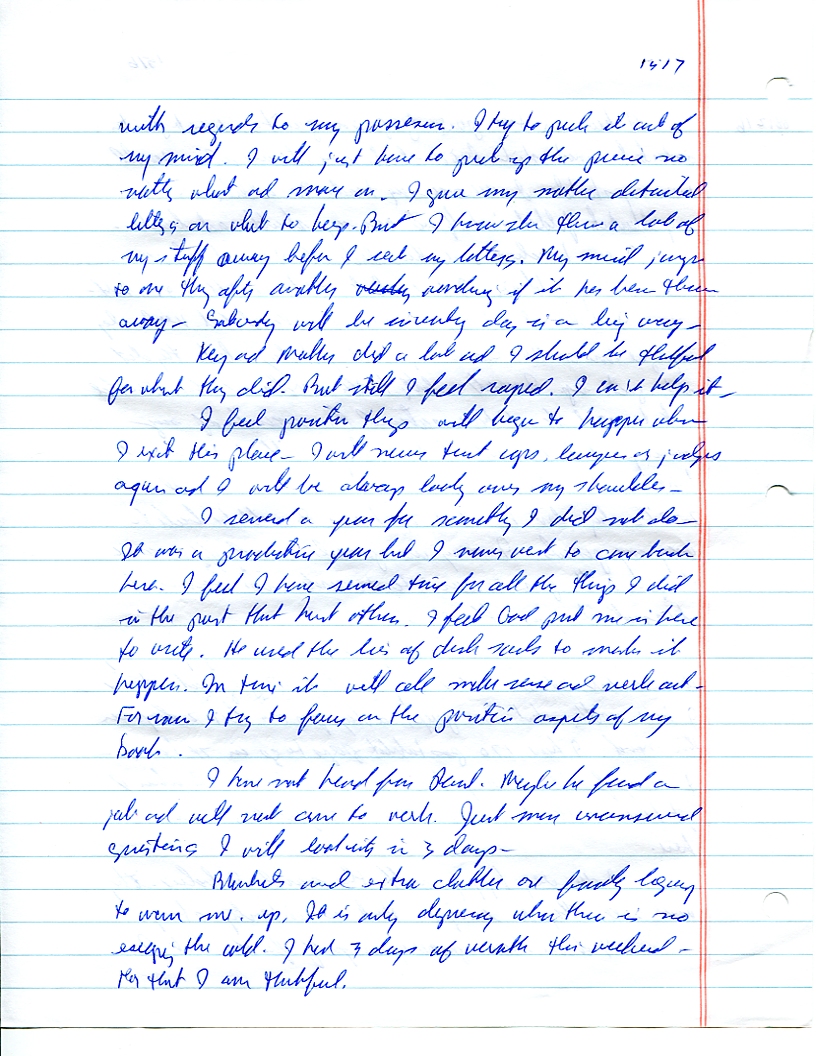 1517
with regards to my possession. I try to push it out of
my mind. I will just have to pick up the pieces no
matter what and move on. I gave my mother detailed
letters on what to keep. But I know she threw a lot of
my stuff away before I sent my letters. My mind jumps
to one thing after another wondering if it has been thrown
away - Saturday will be inventory day in a big way -
Key and Mother did a lot and I should be thankful
for what they did. But still I feel raped. I can't help it -
I feel positive things will begin to happen when
I exit this place - I will never trust cops, lawyers or judges
again and I will be always looking over my shoulder -
I served a year for something I did not do -
It was a productive year but I never want to come back
here. I feel I have served time for all the things I did
in the past that hurt others. I feel God put me in here
to write. He used the lies of to make it
happen. In time it will all make sense and work out -
For now I try to focus on the positive aspects of my
book.
I have not heard from . Maybe he found a
job and will not come to work. Just more unanswered
questions I will in 3 days -
Blankets and extra clothes are finally beginning
to warm me up. It is only depressing when there is no
escaping the cold. I had 3 days of warmth this weekend -
For that I am thankful.